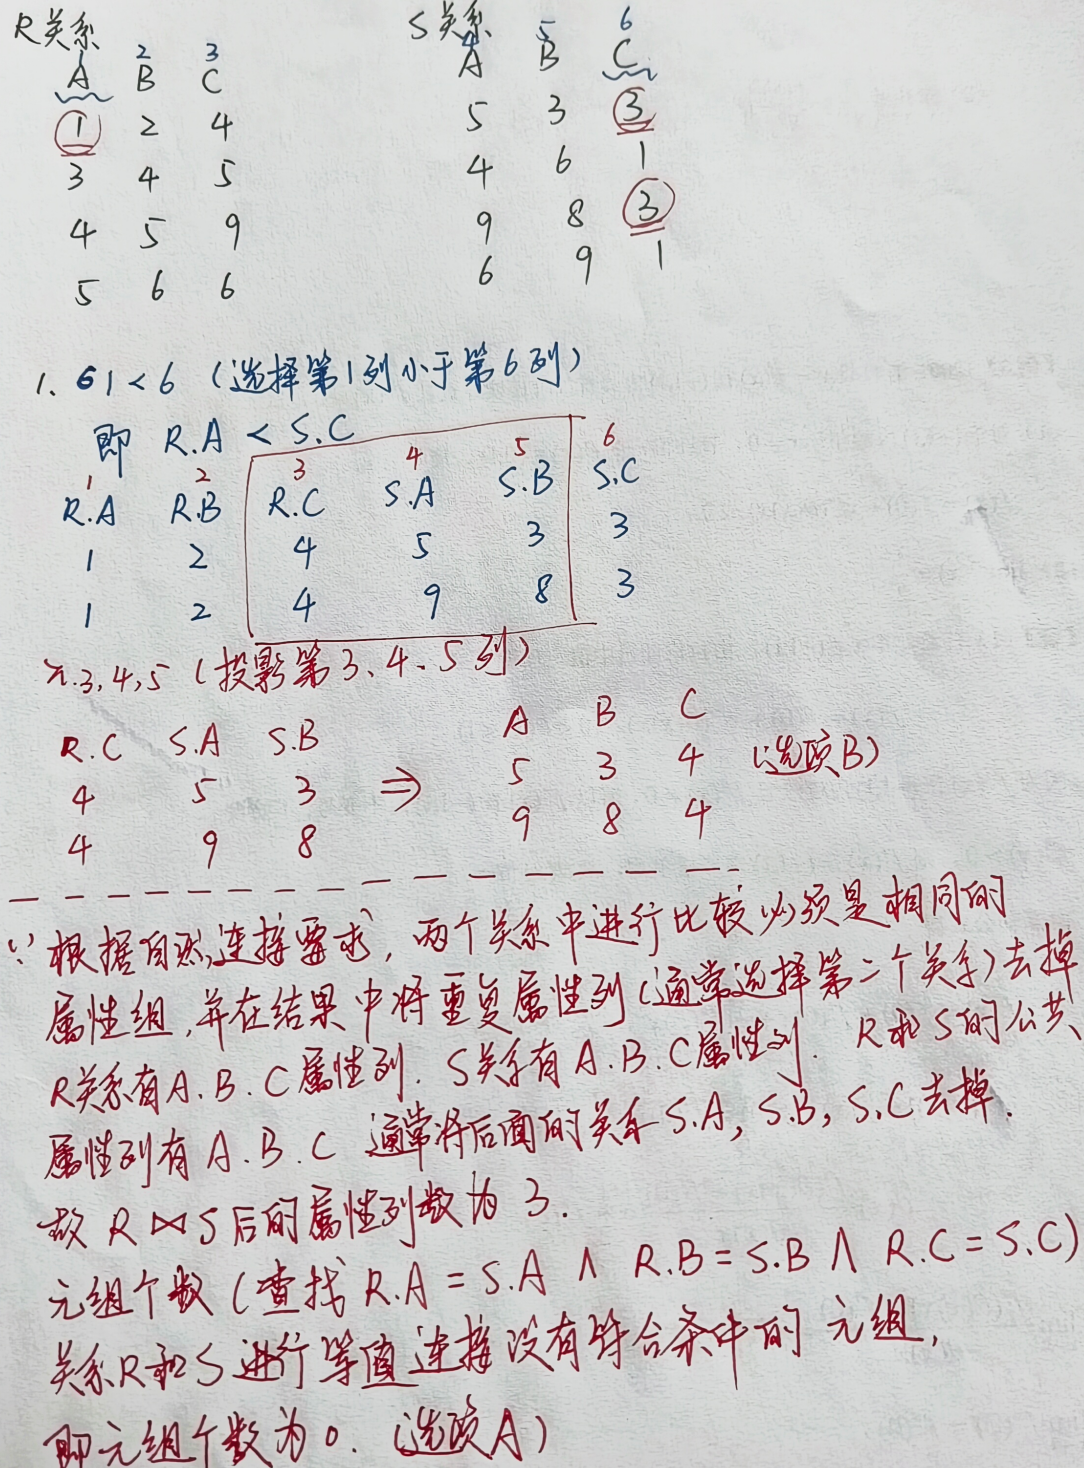 R关系 S关系
1 2 3 4 5 6
A B C A B C
1 2 4 5 3 3
3 4 5 4 6 1
4 5 9 9 8 3
5 6 6 6 9 1
1. σ1<6 (选择第1列小于第6列)
即 R.A < S.C
1 2 3 4 5 6
R.A R.B R.C S.A S.B S.C
1 2 4 5 3 3
1 2 4 9 8 3
π.3,4,5 (投影第3、4、5列)
R.C S.A S.B A B C
4 5 3 ⇒ 5 3 4 (选项B)
4 9 8 9 8 4
∵ 根据自然连接要求, 两个关系中进行比较必须是相同的
属性组, 并在结果中将重复属性列(通常选择第二个关系)去掉
R关系有A.B.C属性列. S关系有A.B.C属性列. R和S的公共
属性列有A.B.C 通常将后面的关系S.A, S.B, S.C去掉.
故R⋈S后的属性列数为3.
元组个数(查找R.A=S.A ∧ R.B=S.B ∧ R.C=S.C)
关系R和S进行等值连接没有符合条件的元组,
即元组个数为0. (选项A)